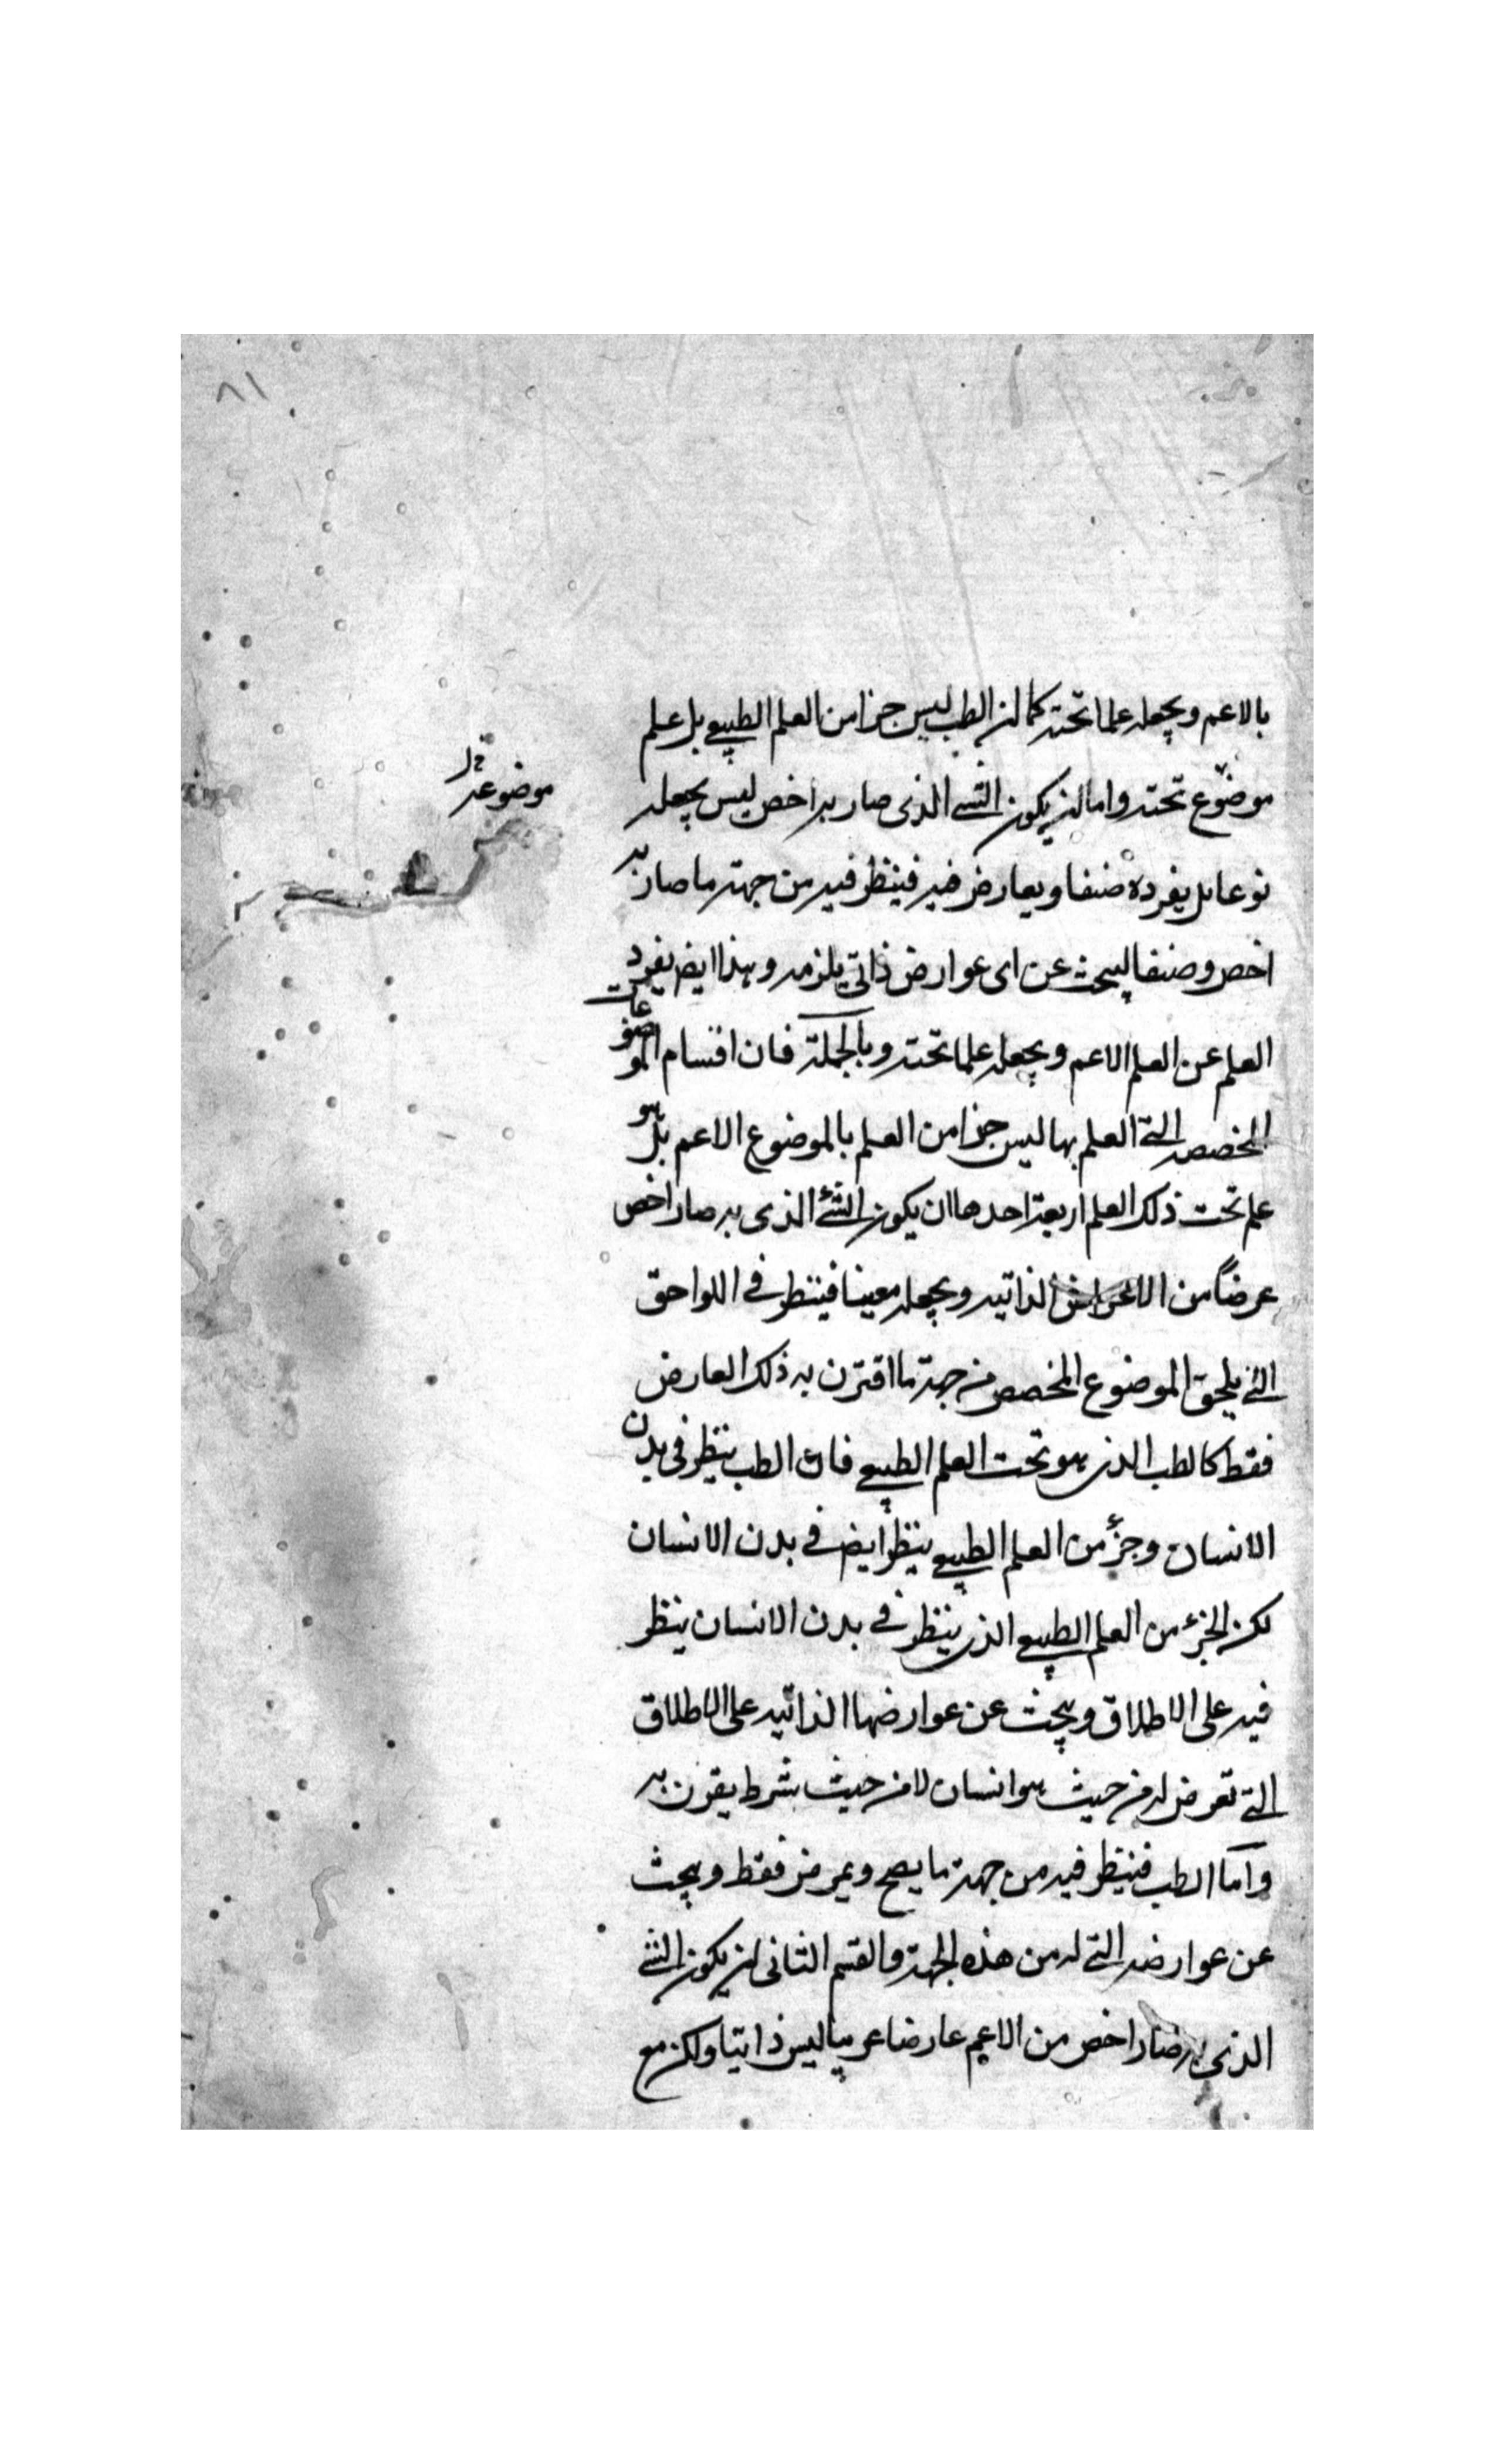 ٨١
بالاعم ويجعله علما تحته كما ان الطب ليس جزا من العلم الطبيعي بل علم
موضوع تحته واما ان يكون الشي الذي صار به اخص ليس يجعله
موضوعة
نوعا بل يفرده صنفا ويعارض فيه فينظر فيه من جهة ما صار به
اخص وصنفا ليبحث عن اى عوارض ذاتي يلزمه وهذا ايض يفرد
العلم عن العلم الاعم ويجعله علما تحته وبالجملة فان اقسام الموضوعات
المخصصه التي العلم بها ليس جزا من العلم بالموضوع الاعم بل هو
علم تحت ذلك العلم اربعة احدها ان يكون الشئ الذي به صار اخص
عرضاً من الاعراض الذاتيه ويجعله معينا فينظر في اللواحق
التي يلحق الموضوع المخصص من جهة ما اقترن به ذلك العارض
فقط كالطب الذي هو تحت العلم الطبيعي فان الطب ينظر في بدن
الانسان وجزؤ من العلم الطبيعي ينظر ايض في بدن الانسان
لكن الجزء من العلم الطبيعي الذي ينظر في بدن الانسان ينظر
فيه على الاطلاق ويبحث عن عوارضها الذاتيه على الاطلاق
التي تعرض له من حيث هو انسان لا من حيث شرط يقرن به
واما الطب فينظر فيه من جهة ما يصح ويمرض فقط ويبحث
عن عوارضه التي له من هذه الجهة والقسم الثانى ان يكون الشئ
الذي به صار اخص من الاعم عارضا عريبا ليس ذاتيا ولكن مع